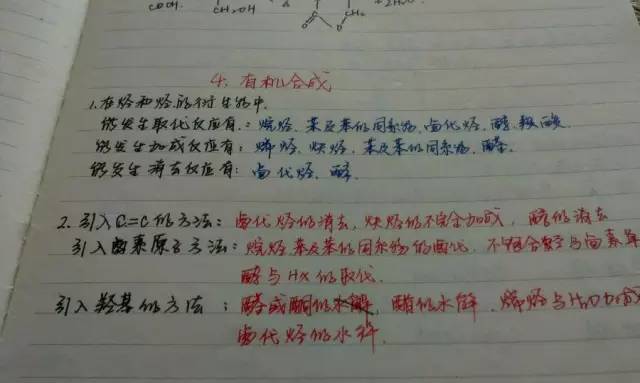 COOH
CH₂OH
CH₂
+2H₂O
4. 有机合成
1. 在烃和烃的衍生物中,
能发生取代反应有:烷烃、苯及苯的同系物、卤代烃、醇、羧酸
能发生加成反应有:烯烃、炔烃、苯及苯的同系物、醛.
能发生消去反应有:卤代烃、醇.
2. 引入C=C的方法:卤代烃的消去,炔烃的不完全加成,醇的消去
引入卤素原子方法:烷烃、苯及苯的同系物的卤代,不饱合烃与卤素单
醇与HX的取代.
引入羟基的方法:醛或酮的,酯的水解、烯烃与H₂O加成
卤代烃的水解.